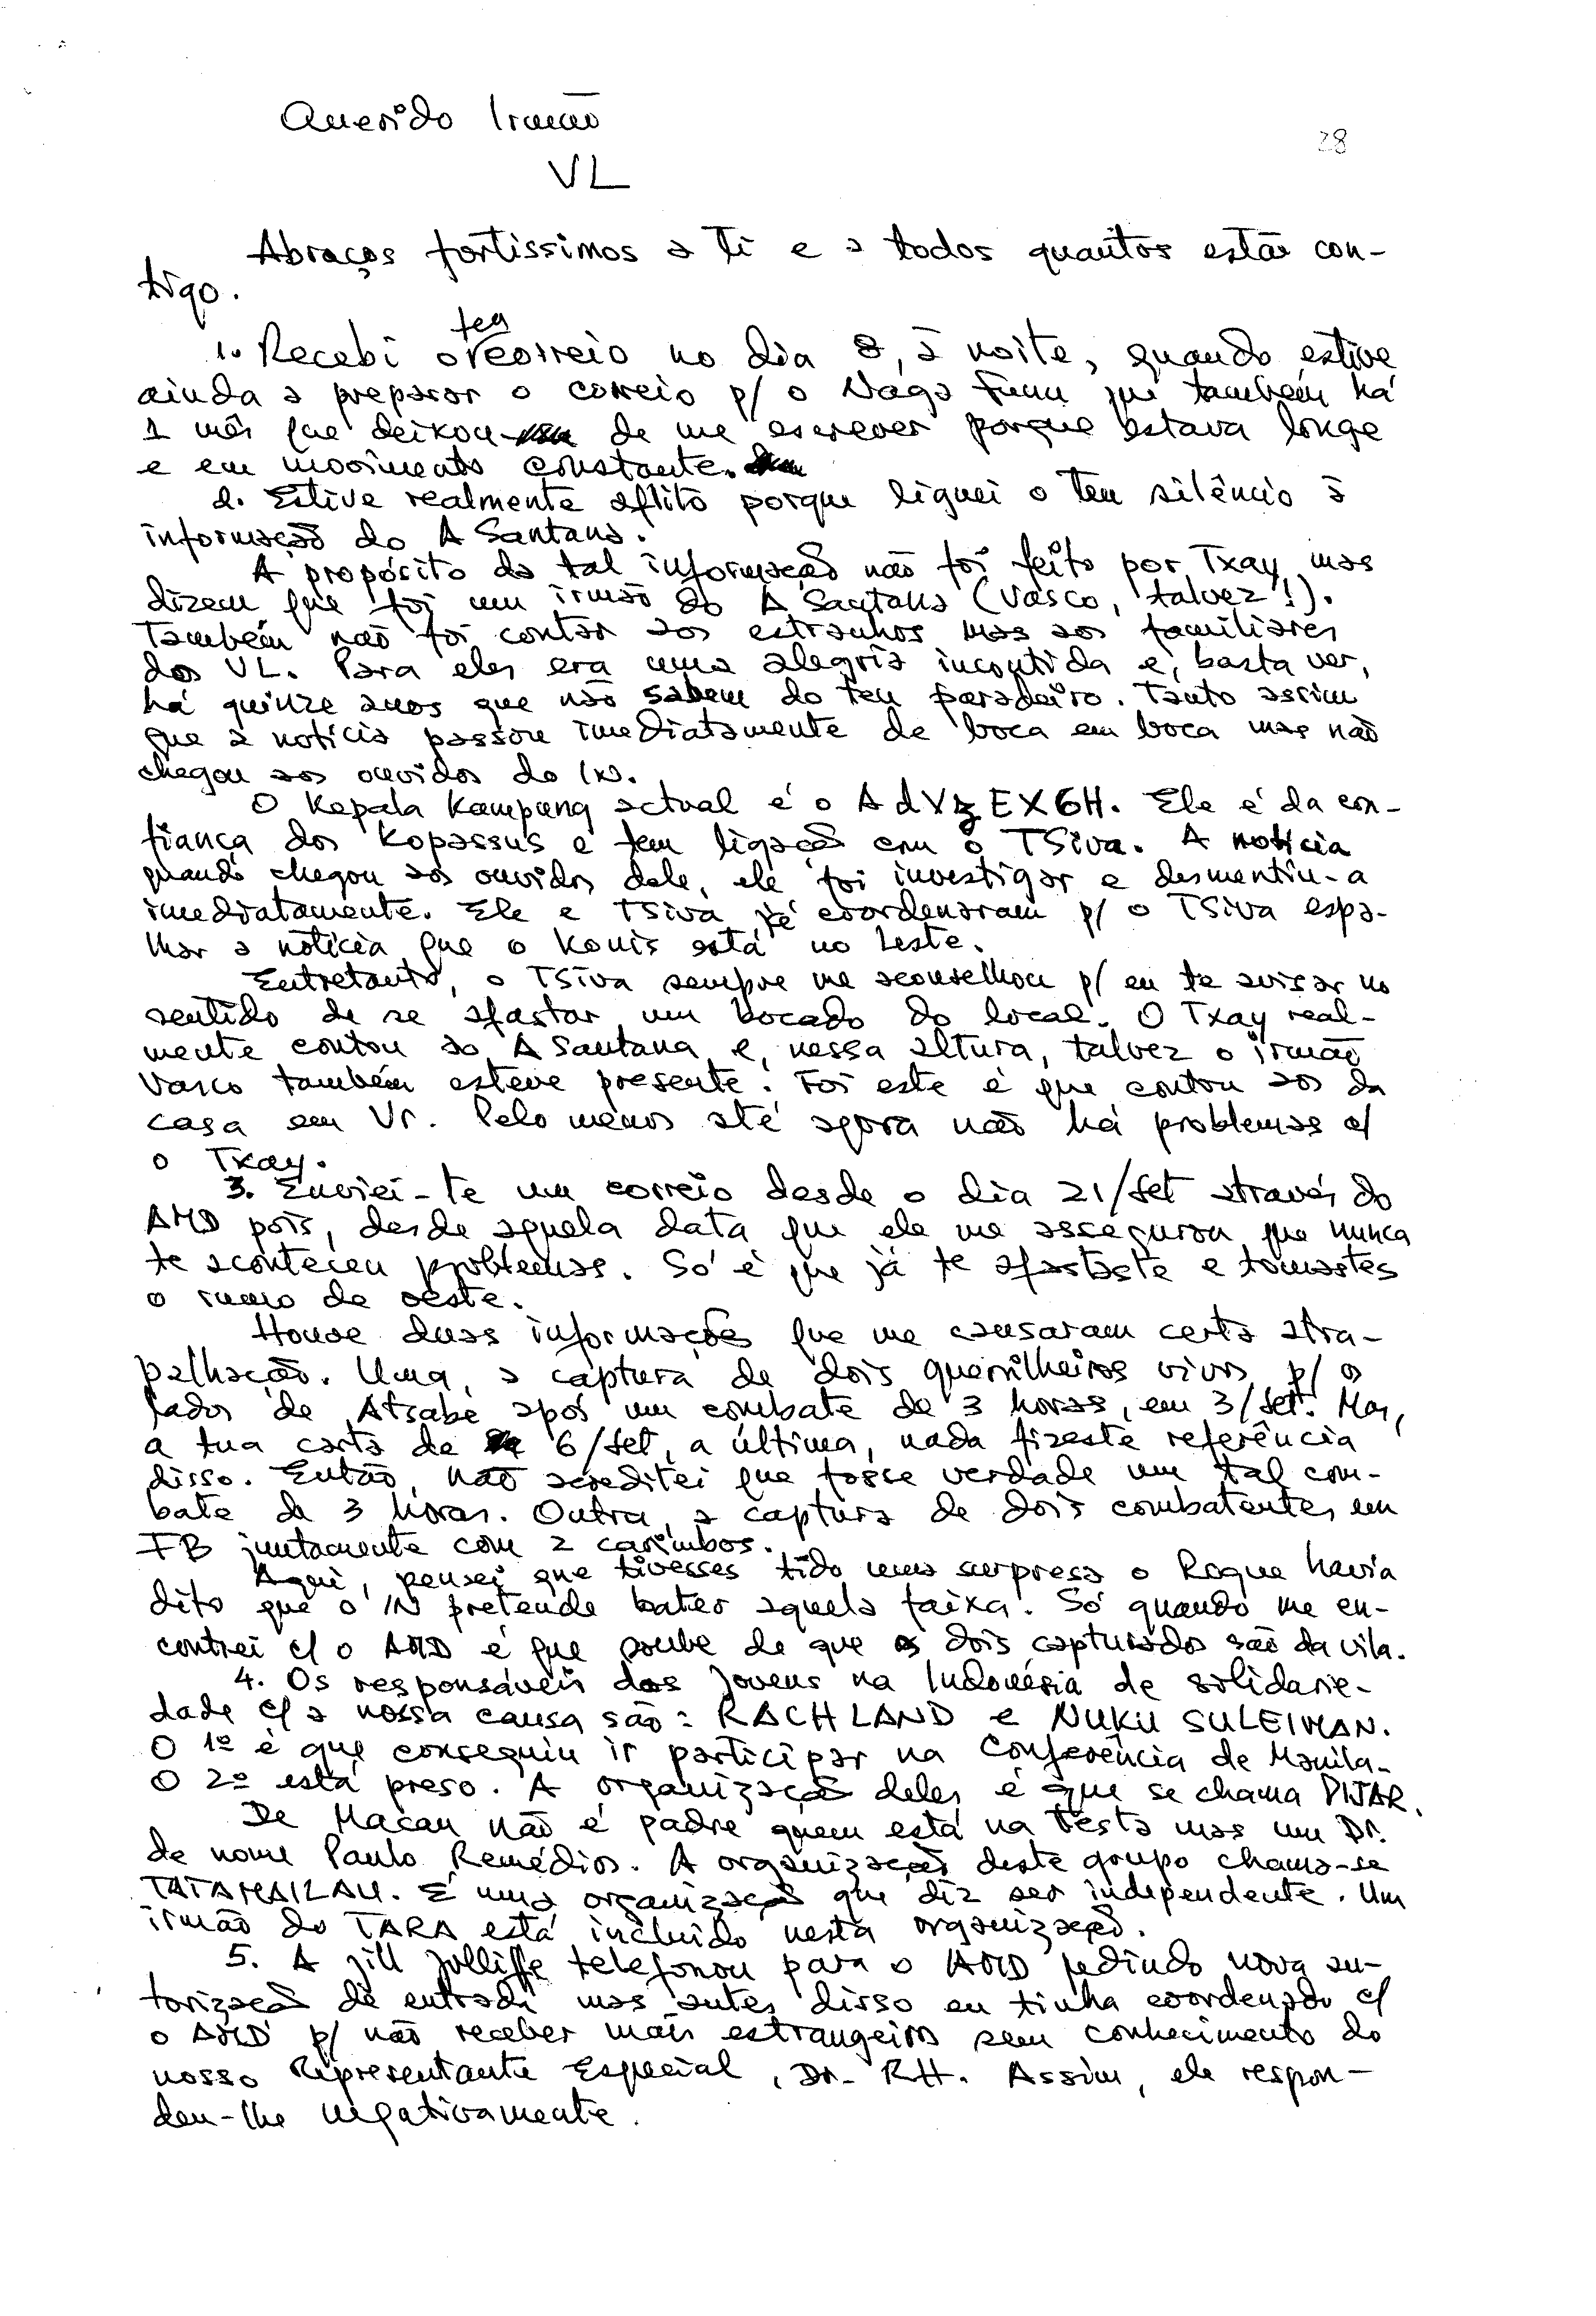 Querido Irmão
28
VL
Abraços fortissimos a Ti e a todos quantos estão con-
tigo.
1. Recebi o teu correio no dia 8, à noite, quando estive
ainda a preparar o correio p/ o Naga Funu que também há
1 mês que deixou de me escrever porque estava longe
e em movimento constante.
2. Estive realmente aflito porque liguei o teu silêncio à
informação do A Santana.
A propósito da tal informação não foi feito por Txay mas
dizem que foi um irmão do A Santana (Vasco, talvez!).
Também não foi contar aos estranhos mas aos familiares
dos VL. Para eles era uma alegria incontida e, basta ver,
há quinze anos que não sabem do teu paradeiro. Tanto assim
que a notícia passou imediatamente de boca em boca mas não
chegou aos ouvidos do IN.
O Kepala Kampung actual é o A d V z E X 6 H. Ele é da con-
fiança dos Kopassus e tem ligação com o TSiva. A notícia
quando chegou aos ouvidos dele, ele foi investigar e desmentiu-a
imediatamente. Ele e TSiva já coordenaram p/ o TSiva espa-
lhar a notícia que o Konis está no Leste.
Entretanto, o TSiva sempre me aconselhou p/ eu te avisar no
sentido de se afastar um bocado do local. O Txay real-
mente contou ao A Santana e, nessa altura, talvez o irmão
Vasco também esteve presente. Foi este é que contou aos da
casa em Vr. Pelo menos até agora não há problemas c/
o Txay.
3. Enviei-te um correio desde o dia 21/Set através do
AMD pois, desde aquela data que ele me assegurou que nunca
te aconteceu problemas. Só é que já te afastaste e tomastes
o rumo de oeste.
Houve duas informações que me causaram certa atra-
palhação. Uma, a captura de dois guerrilheiros vivos p/ os
lados de Atsabe após um combate de 3 horas, em 3/Set. Mas,
a tua carta de 6/Set, a última, nada fizeste referência
disso. Então, não acreditei que fosse verdade um tal com-
bate de 3 horas. Outra, a captura de dois combatentes em
FB juntamente com 2 carimbos.
Aqui, pensei que tivesses tido uma surpresa o Roque havia
dito que o IN pretende bater aquela faixa. Só quando me en-
contrei c/ o AMD é que soube de que os dois capturados são da vila.
4. Os responsáveis dos jovens na Indonésia de solidarie-
dade c/ a nossa causa são: RACHLAND e NUKU SULEIMAN.
O 1º é que conseguiu ir participar na Conferência de Manila.
O 2º está preso. A organização deles é que se chama PIJAR.
De Macau não é padre quem está na testa mas um Dr.
de nome Paulo Remédios. A organização deste grupo chama-se
TATAMAILAU. É uma organização que diz ser independente. Um
irmão do TARA está incluido nesta organização.
5. A Jill Jolliffe telefonou para o AMD pedindo nova au-
torização de entrada mas antes disso eu tinha coordenado c/
o AMD p/ não receber mais estrangeiros sem conhecimento do
nosso Representante Especial, Dr. RH. Assim, ele respon-
deu-lhe negativamente.